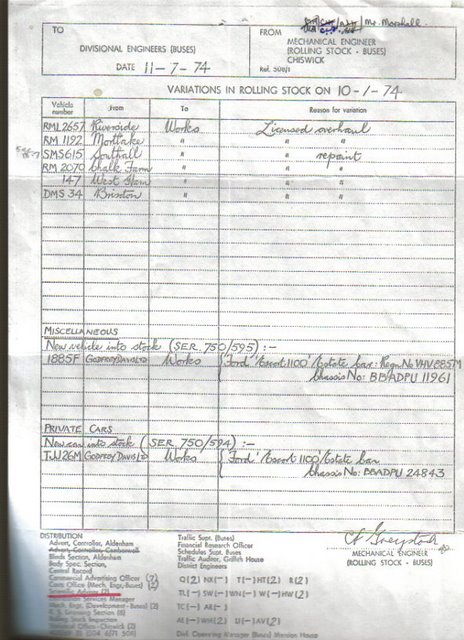 TO
DIVISIONAL ENGINEERS (BUSES)
DATE 11-7-74
FROM Mr. Marshall.
MECHANICAL ENGINEER
(ROLLING STOCK - BUSES)
CHISWICK
Ref. 508/1
VARIATIONS IN ROLLING STOCK ON 10-1-74
Vehicle number From To Reason for variation
RML2657 Riverside Works Licensed overhaul
RM 1192 Mortlake " " "
SMS615 Southall " " repaint
RM 2070 Chalk Farm " " "
147 West Ham " " "
DMS 34 Brixton " " "
MISCELLANEOUS
New vehicle into stock (SER. 750/595) :-
1885F GODFREY DAVIS LTD Works { 'Ford' 'Escort 1100' Estate Car: Regn. No VHV885M
Chassis No: BBADPU 11961
PRIVATE CARS
New car into stock (SER 750/594) :-
TJJ26M GODFREY DAVIS LTD Works { 'Ford' 'Escort 1100' Estate Car
Chassis No: BBADPU 24843
MECHANICAL ENGINEER
(ROLLING STOCK - BUSES)
DISTRIBUTION
Advert. Controller, Aldenham
Advert. Controller Camberwell
Blinds Section, Aldenham
Body Spec. Section,
Central Record
Commercial Advertising Officer (7)
Costs Office (Mech. Engr-Buses) (2)
Services Manager
Mech. Engr. (Development - Buses) (2)
Rolling Stock Inspection
Traffic Supt. (Buses)
Financial Research Officer
Schedules Supt. Buses
Traffic Auditor, Griffith House
District Engineers
Q(2) NX(-) T(-) HT(2) R(2)
TL(-) SW(-) WN(-) W(-) HW(2)
TC(-) AR(-)
AL(-) WH(2) U(-) AV(2)
Divl. Operating Manager (Buses) Mansion House